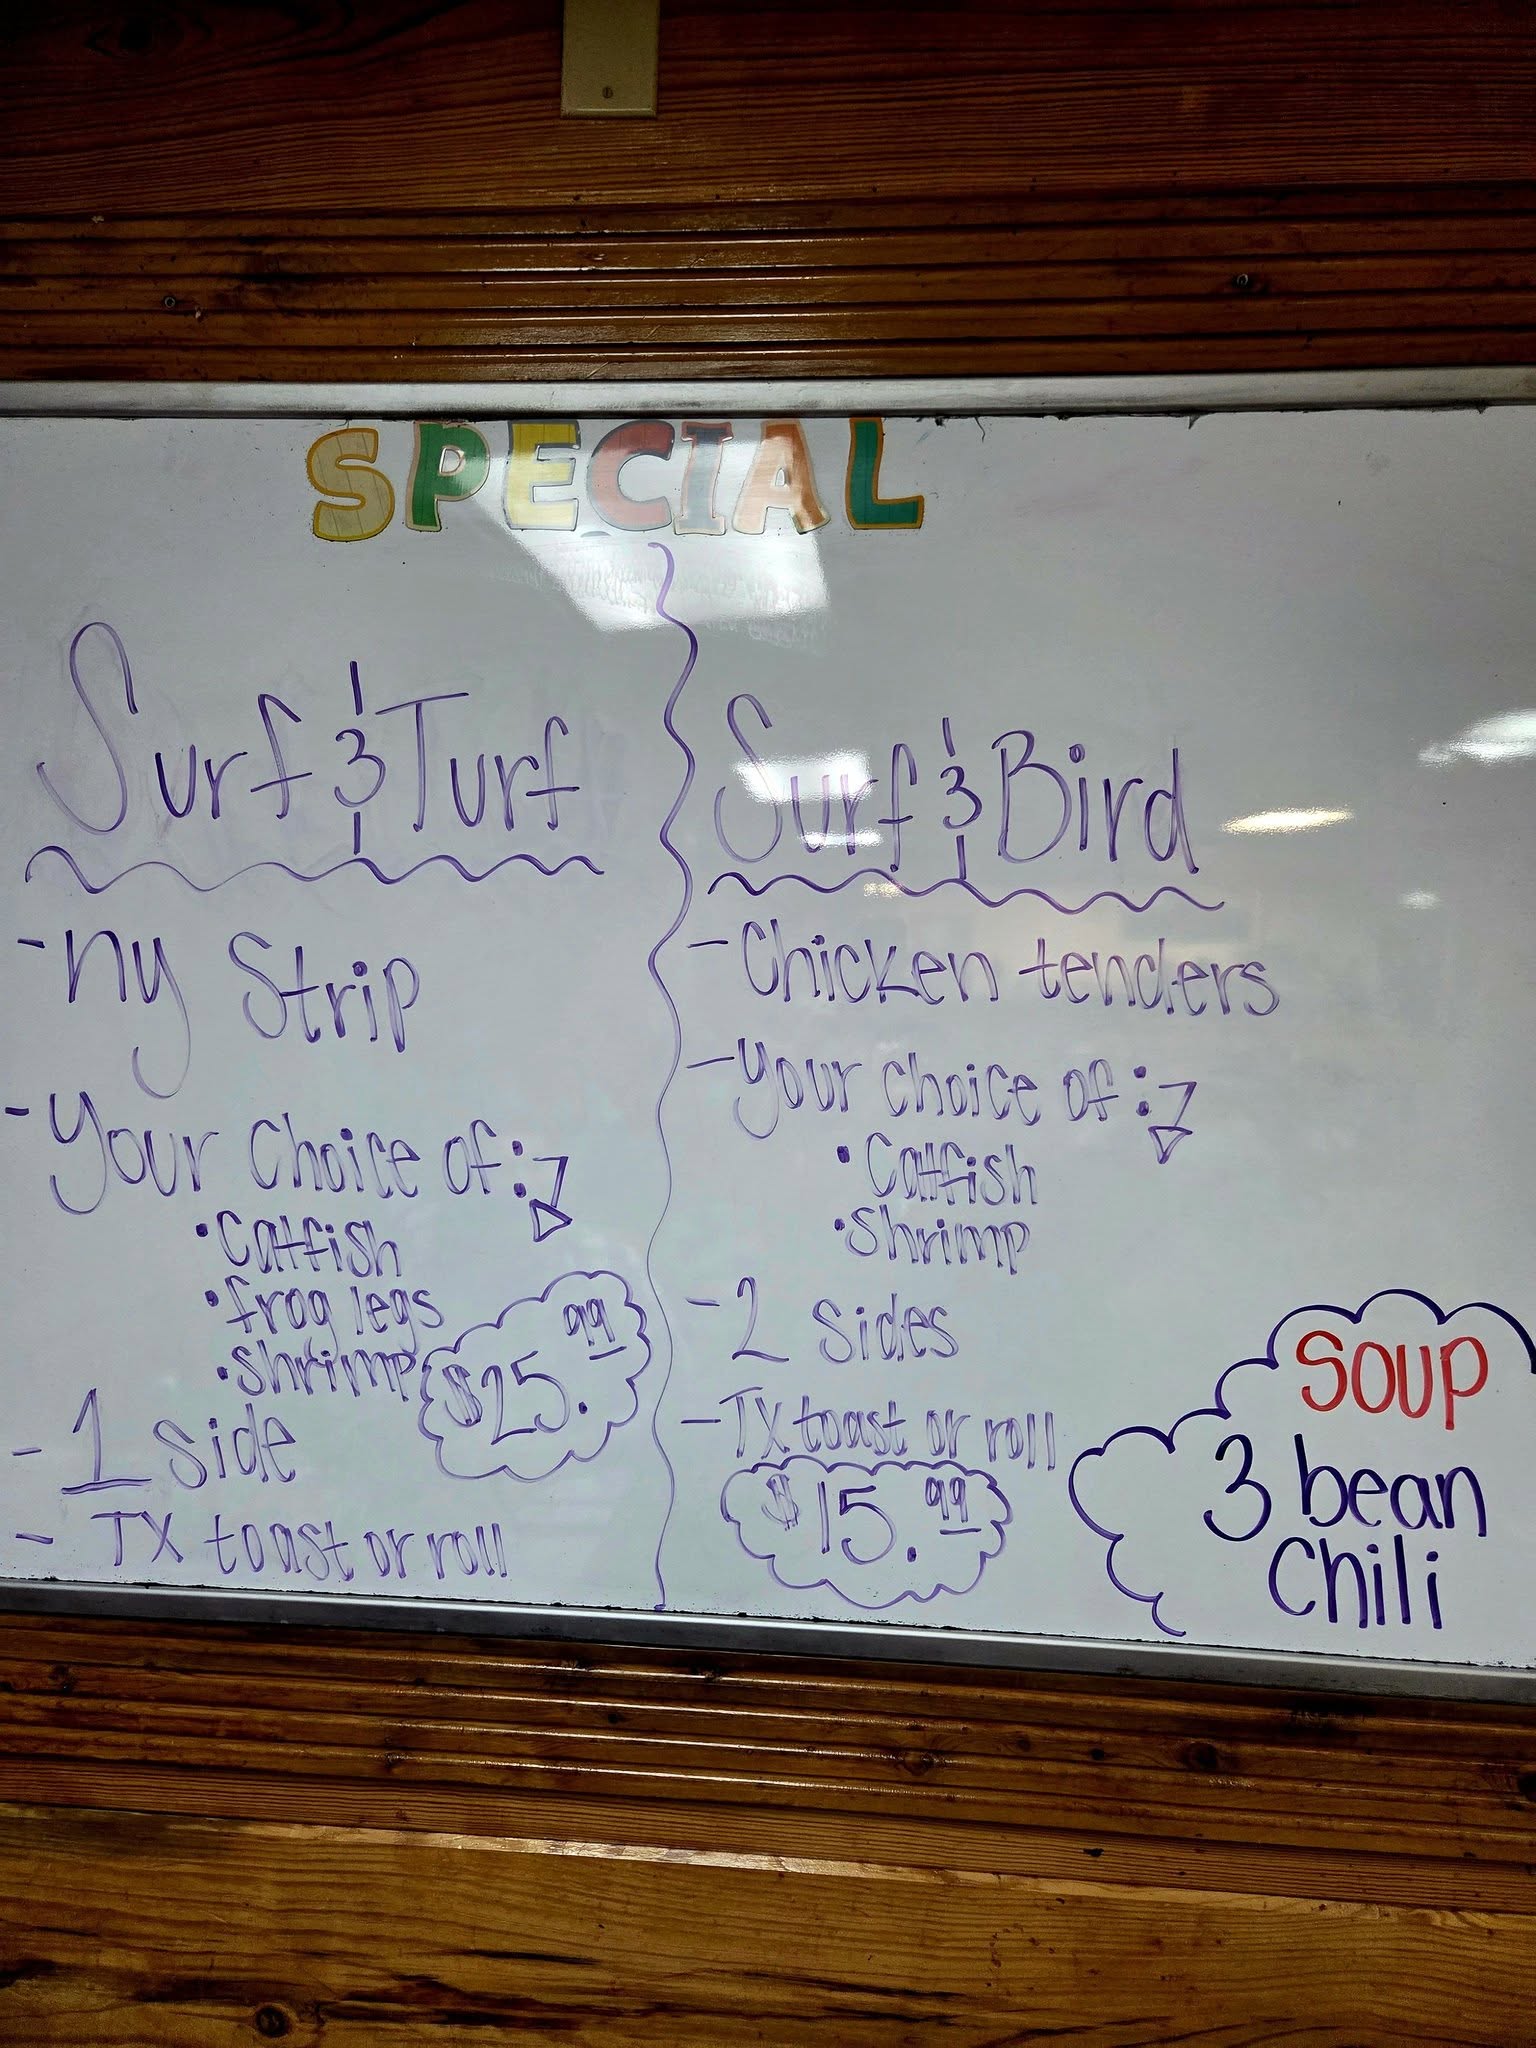 SPECIAL
Surf & Turf
- ny Strip
- Your Choice of:
• Catfish
• frog legs
• Shrimp
$25.99
- 1 Side
- TX toast or roll
Surf & Bird
- Chicken tenders
- Your choice of:
• Catfish
• Shrimp
- 2 Sides
- TX toast or roll
$15.99
Soup
3 bean
Chili